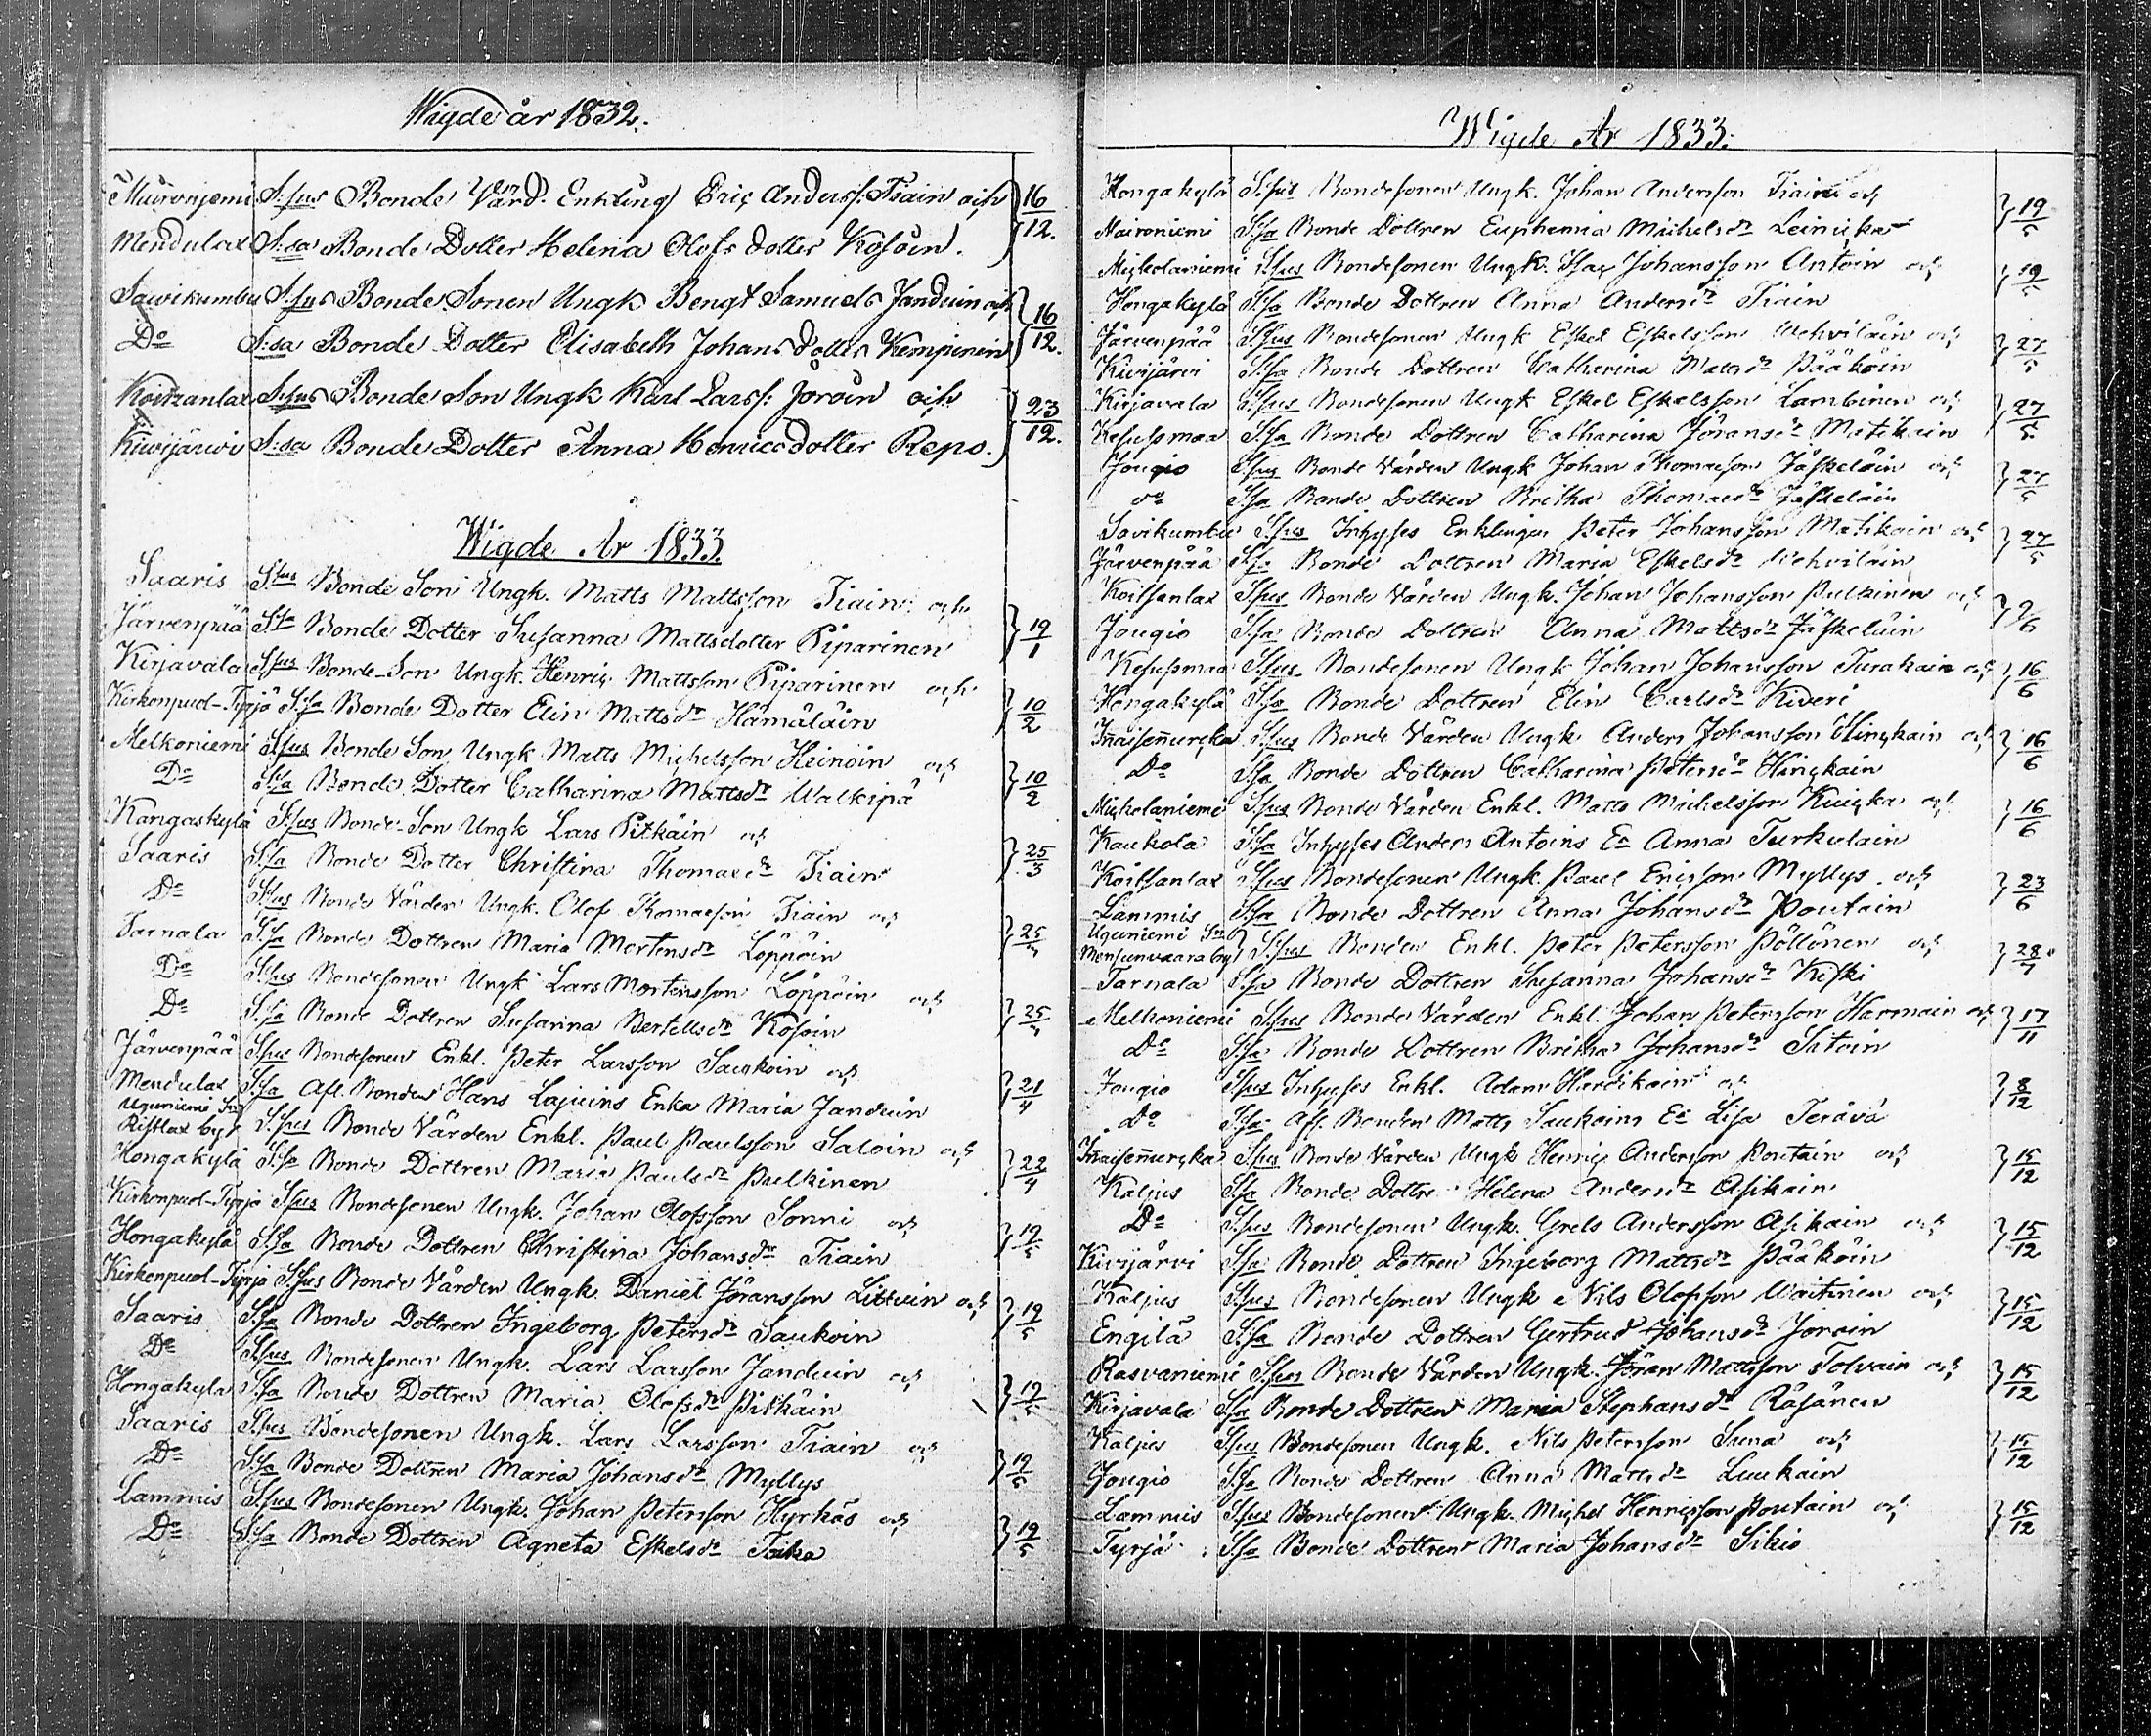 Wigde år 1832.
Muironjemi S:sus Bonde Värd. Enkling Eric Anderss: Tiain och } 16/12.
Mendulax S:sa Bonde Dotter Helena Olofs dotter Kosoin.
Sawikumbu S:sus Bonde Sonen Ungk Bengt Samuels Janduin och } 16/12.
Do S:sa Bonde Dotter Elisabeth Johans dotter Kempinin
Koitzanlax S:sus Bonde Son Ungk Karl Larss: Joroin och } 23/12.
Kiwijärwi S:sa Bonde Dotter Anna Henricsdotter Repo.
Wigde År 1833.
Saaris S:sus Bonde Son Ungk. Matts Mattsson Tiain och } 19/1
Järvenpää S:sa Bonde Dotter Susanna Mattsdotter Piparinen
Kirjavala S:sus Bonde-Son Ungk. Henric Mattsson Piparinen och } 10/2
Kirkonpuol-Tyrjä S:sa Bonde Dotter Elin Mattsdr Hämäläin
Melkoniemi S:sus Bonde Son Ungk Matts Michelsson Heinoin och } 10/2
Do S:sa Bonde Dotter Catharina Mattsdr Walkipä
Kangaskylä S:sus Bonde-Son Ungk Lars Pitkäin och } 25/3
Saaris S:sa Bonde Dotter Christina Thomasdr Tiain
Do S:sus Bonde Värden Ungk. Olof Thomasson Tiain och } 25/
Tarnala S:sa Bonde Dottren Maria Mortensdr Löppöin
Do S:sus Bondesonen Ungk Lars Mortensson Löppöin och } 25/
Do S:sa Bonde Dottren Susanna Bertellsdr Kosoin
Järvenpää S:sus Bondesonen Enkl. Peter Larsson Saukoin och } 21/4
Mendulax S:sa Afl. Bonden Hans Lajuins Enka Maria Janduin
Uguniemi Sn Ristlax by S:sus Bonde Värden Enkl. Paul Paulsson Saloin och } 22/4
Hongakylä S:sa Bonde Dottren Maria Paulsdr Pulkinen
Kirkonpuol-Tyrjä S:sus Bondesonen Ungk. Johan Olofsson Sonni och } 19/5
Hongakylä S:sa Bonde Dottren Christina Johansdr Tiain
Kirkonpuol-Tyrjä S:sus Bonde Värden Ungk. Daniel Jöransson Littuin och } 19/5
Saaris S:sa Bonde Dottren Ingeborg Petersdr Saukoin
Do S:sus Bondesonen Ungk. Lars Larsson Janduin och } 19/5
Hongakylä S:sa Bonde Dottren Maria Olofsdr Pitkäin
Saaris S:sus Bondesonen Ungk. Lars Larsson Tiain och } 19/5
Do S:sa Bonde Dottren Maria Johansdr Myllys
Lammis S:sus Bondesonen Ungk. Johan Petersson Hyrkäs och } 19/5
Do S:sa Bonde Dottren Agneta Eskelsdr Toika
Wigde År 1833.
Hongakylä S:sus Bondesonen Ungk. Johan Andersson Tiain och } 19/5
Naironiemi S:sa Bonde Dottren Euphemia Michelsdr Leinicka
Mickolaniemi S:sus Bondesonen Ungk. Isac Johansson Antoin och } 19/5
Hongakylä S:sa Bonde Dottren Anna Andersdr Tiain
Järvenpää S:sus Bondesonen Ungk Eskel Eskelsson Wehviläin och } 27/5
Kivijärvi S:sa Bonde Dottren Catharina Mattsdr Pääköin
Kirjavala S:sus Bondesonen Ungk Eskel Eskelsson Lambinen och } 27/5
Kesusmaa S:sa Bonde Dottren Catharina Jöransdr Matikain
Jougio S:sus Bonde Värden Ungk Johan Thomasson Jäskeläin och } 27/5
do S:sa Bonde Dottren Britha Thomasdr Jäskeläin
Savikumbu S:sus Inhyses Enklingen Peter Johansson Matikain och } 27/5
Järvenpää S:sa Bonde Dottren Maria Eskelsdr Wehviläin
Koitsanlax S:sus Bonde Värden Ungk. Johan Johansson Pulkinen och } 9/6
Jougio S:sa Bonde Dottren Anna Mattsdr Jäskeläin
Kesusmaa S:sus Bondesonen Ungk Johan Johansson Turakain och } 16/6
Hongakylä S:sa Bonde Dottren Elin Carlsdr Kiveri
Innaisenurcka S:sus Bonde Värden Ungk Anders Johansson Hinckain och } 16/6
Do S:sa Bonde Dottren Catharina Petersdr Hinckain
Mickolaniemi S:sus Bonde Värden Enkl. Matts Michelsson Kuicka och } 16/6
Kaukola S:sa Inhyses Anders Antoins Ea Anna Turkulain
Koitsanlax S:sus Bondesonen Ungk. Paul Ericsson Myllys och } 23/6
Lammis S:sa Bonde Dottren Anna Johansdr Poutain
Uguniemi Sn Mensunvaara by S:sus Bonden Enkl. Peter Petersson Pöllönen och } 28/7
Tarnala S:sa Bonde Dottren Susanna Johansdr Keski
Melkoniemi S:sus Bonde Värden Enkl. Johan Petersson Harmain och } 17/11
Do S:sa Bonde Dottren Britha Johansdr Sitoin
Jougio S:sus Inhyses Enkl. Adam Hardikain och } 8/12
Do S:sa Afl. Bonden Matts Saukoins Ea Lisa Terävä
Innaisenurcka S:sus Bonde Värden Ungk Henric Andersson Poutain och } 15/12
Kaljus S:sa Bonde Dottre Helena Andersdr Asikain
Do S:sus Bondesonen Ungk. Grels Andersson Asikain och } 15/12
Kivijärvi S:sa Bonde Dottren Ingeborg Mattsdr Pääköin
Kaljus S:sus Bondesonen Ungk Nils Olofsson Waitinen och } 15/12
Engilä S:sa Bonde Dottren Gertrud Johansdr Joroin
Rasvaniemi S:sus Bonde Värden Ungk. Jöran Mattsson Tolvain och } 15/12
Kirjavala S:sa Bonde Dottren Maria Stephansdr Räsänen
Kaljus S:sus Bondesonen Ungk. Nils Petersson Suna och } 15/12
Jougio S:sa Bonde Dottren Anna Mattsdr Luukain
Lammis S:sus Bondesonen Ungk. Michel Henricsson Poutain och } 15/12
Tyrjä S:sa Bonde Dottren Maria Johansdr Sikio